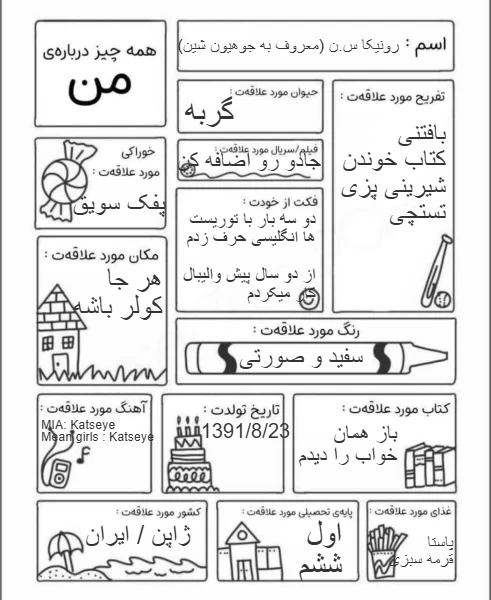 همه چیز درباره‌ی
من
اسم : رونیکا س.ن (معروف به جوهیون شین)
حیوان مورد علاقه‌ت :
گربه
تفریح مورد علاقه‌ت :
بافتنی
کتاب خوندن
شیرینی پزی
تستچی
خوراکی
مورد علاقه‌ت :
پفک سویق
فیلم/سریال مورد علاقه‌ت :
جادو رو اضافه کن
فکت از خودت :
دو سه بار با توریست
ها انگلیسی حرف زدم
از دو سال پیش والیبال
کار میکردم
مکان مورد علاقه‌ت :
هر جا
کولر باشه
رنگ مورد علاقه‌ت :
سفید و صورتی
کتاب مورد علاقه‌ت :
باز همان
خواب را دیدم
تاریخ تولدت :
1391/8/23
آهنگ مورد علاقه‌ت :
MIA: Katseye
Mean girls : Katseye
غذای مورد علاقه‌ت :
پاستا
قرمه سبزی
پایه‌ی تحصیلی مورد علاقه‌ت :
اول
ششم
کشور مورد علاقه‌ت :
ژاپن / ایران